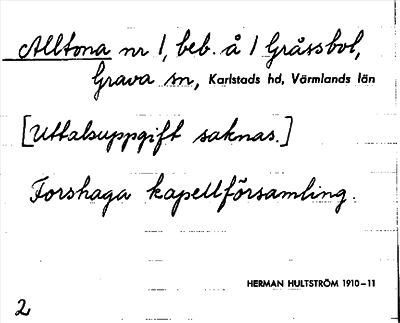 Alltona nr 1, beb. å 1 Gråssbol,
Grava sn, Karlstads hd, Värmlands län
[Uttalsuppgift saknas.]
Forshaga kapellförsamling.
HERMAN HULTSTRÖM 1910–11
2